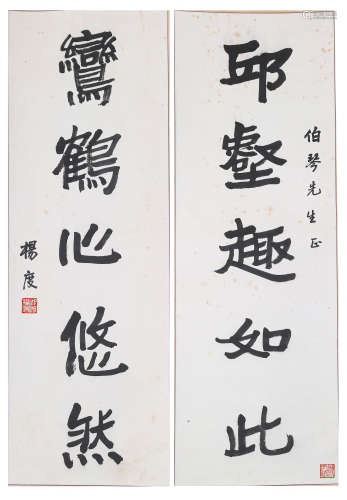 邱壑趣如此
伯琴先生正
鸞鶴心悠然
楊度